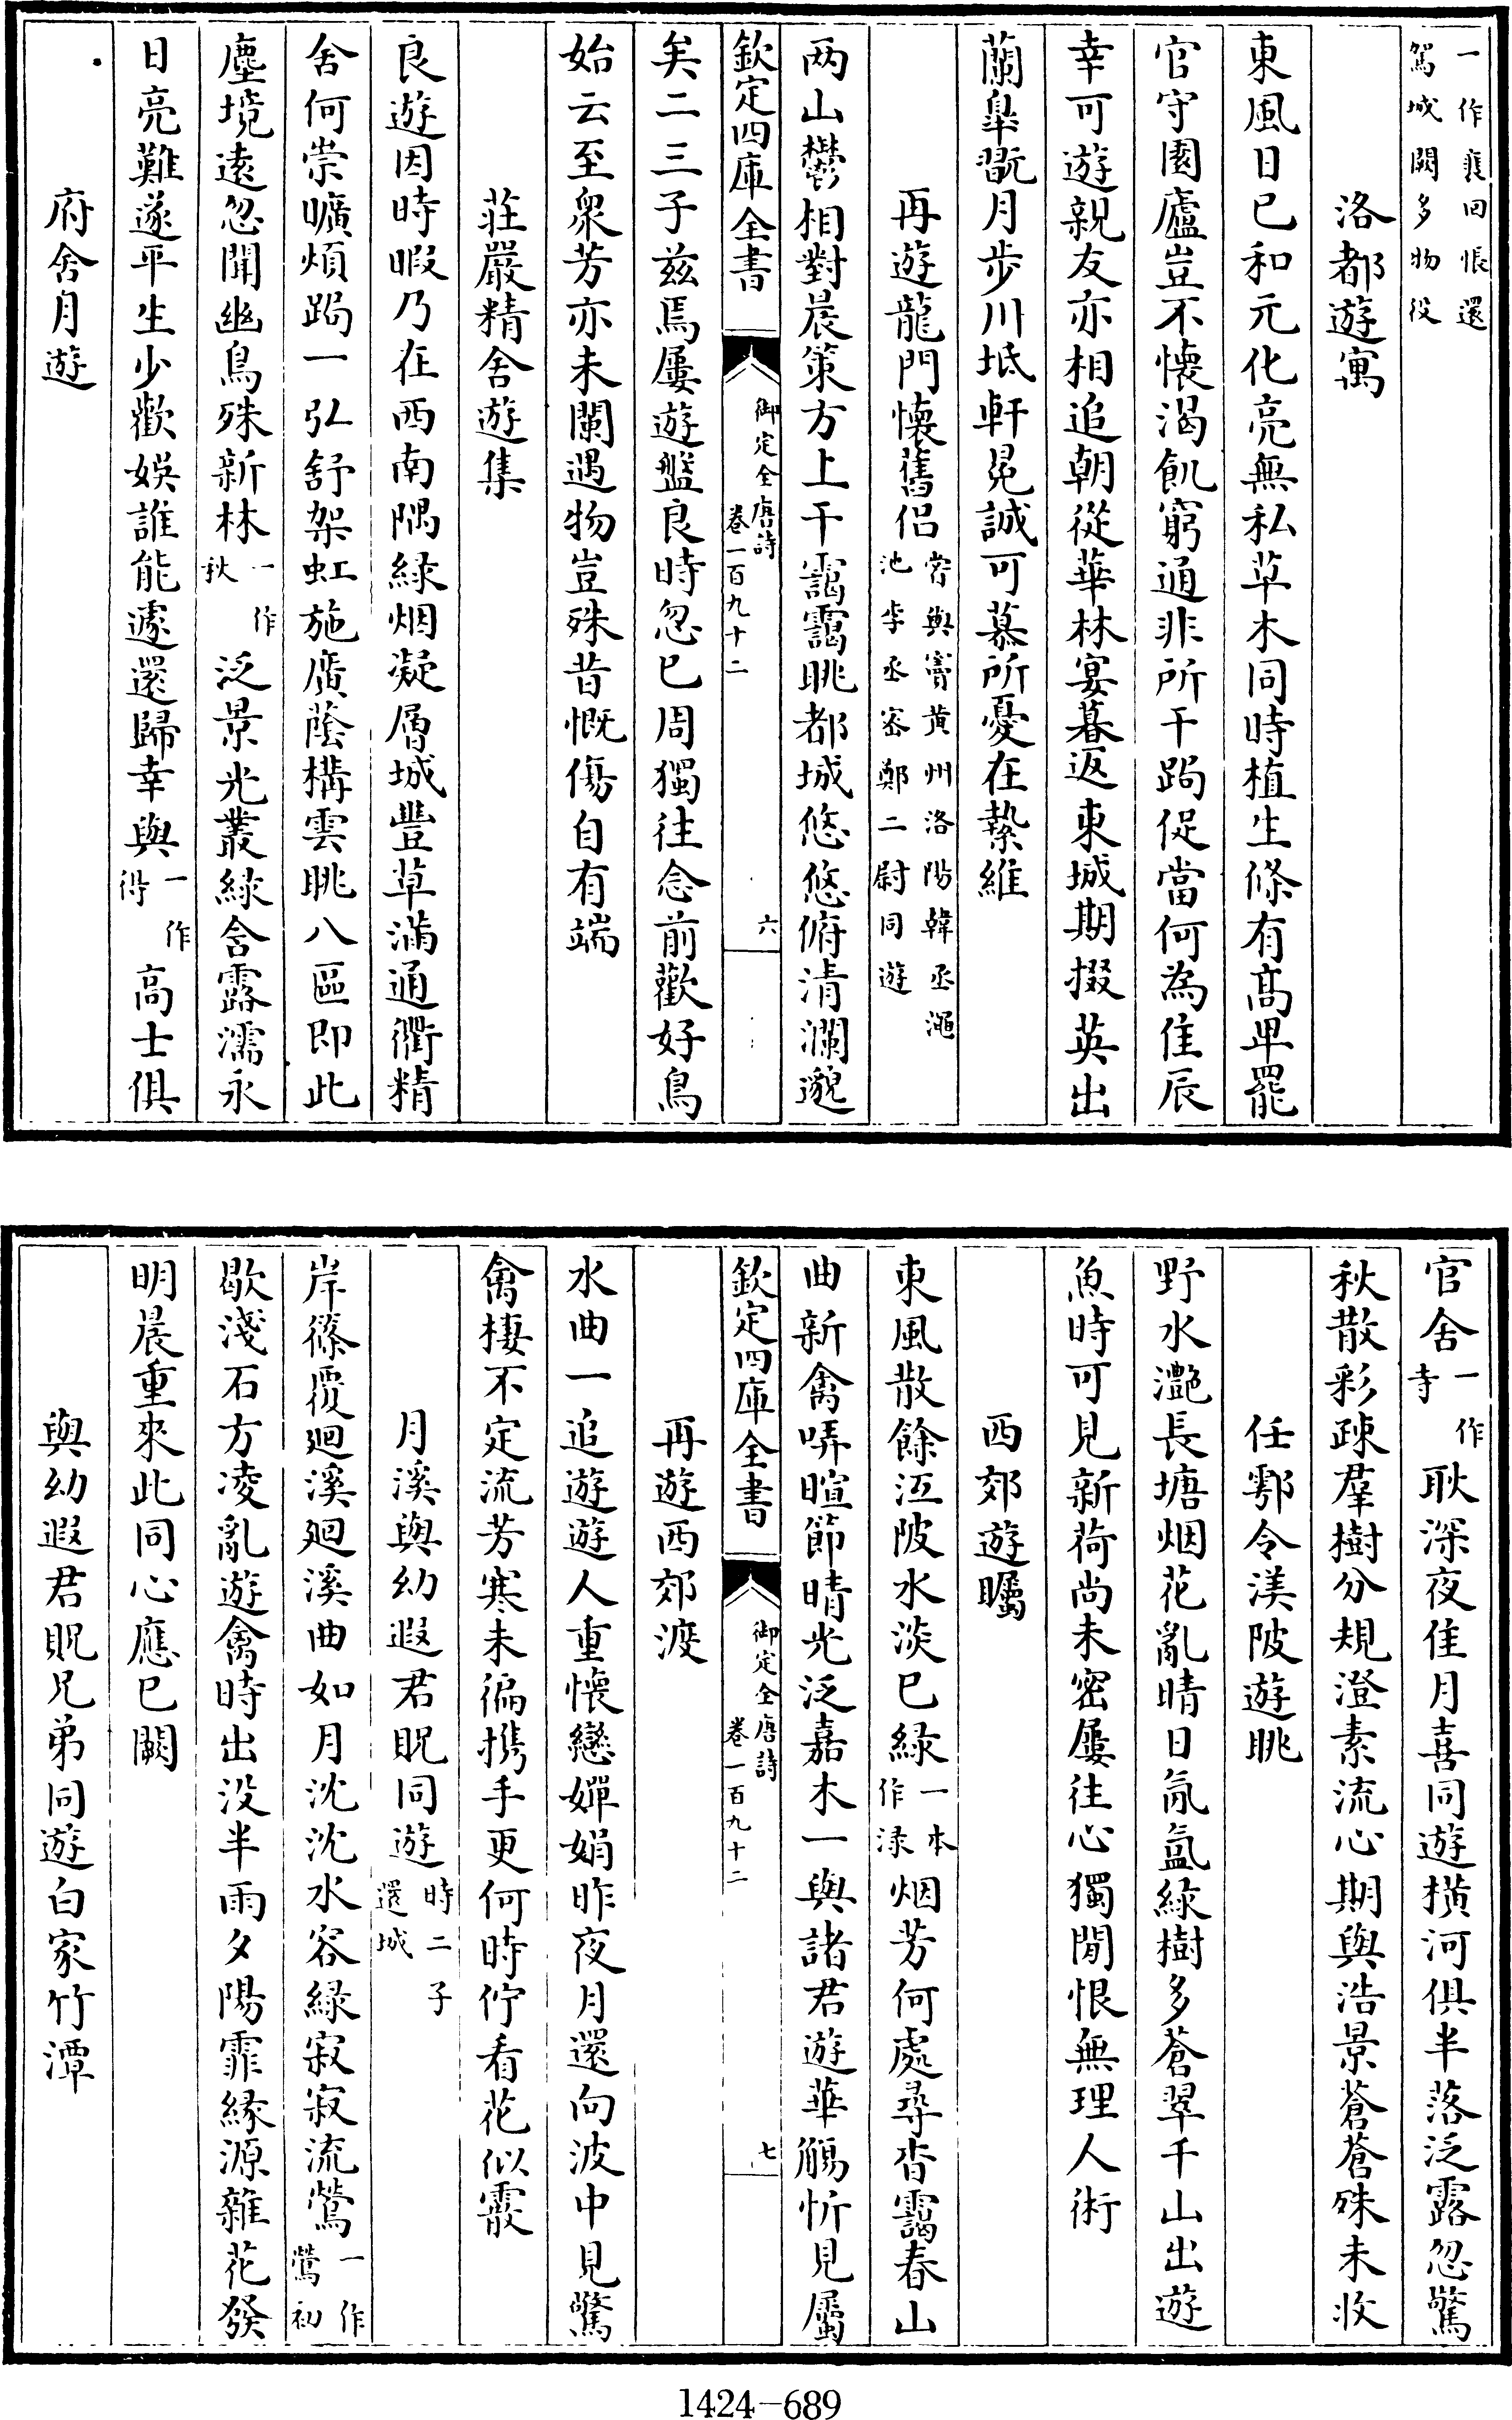 一作襄回悵還
駕城闕多物役
洛都遊寓
東風日已和元化亮無私草木同時植生條有髙卑罷
官守園廬豈不懷渴飢窮通非所干跼促當何為佳辰
幸可遊親友亦相追朝從華林宴暮返東城期掇英出
蘭臯翫月步川坻軒冕誠可慕所憂在縶維
再遊龍門懷舊侣嘗與竇黄州洛陽韓丞澠
池李丞宻鄭二尉同遊
两山鬱相對晨策方上干靄靄眺都城悠悠俯清瀾邈
欽定四庫全書
御定全唐詩
卷一百九十二
六
矣二三子兹焉屢遊盤良時忽已周獨往念前歡好鳥
始云至衆芳亦未闌遇物豈殊昔慨傷自有端
莊嚴精舍遊集
良遊因時暇乃在西南隅緑烟凝層城豐草滿通衢精
舍何崇曠煩跼一弘舒架虹施廣蔭構雲眺八區即此
塵境逺忽聞幽鳥殊新林一作秋泛景光叢緑含露濡永
日亮難遂平生少歡娱誰能遽還歸幸與一作得髙士俱
府舍月遊
官舍一作寺耿深夜佳月喜同遊横河俱半落泛露忽驚
秋散彩疎羣樹分規澄素流心期與浩景蒼蒼殊未收
任鄠令渼陂遊眺
野水灧長塘烟花亂晴日氤氲緑樹多蒼翠千山出遊
魚時可見新荷尚未密屢往心獨閒恨無理人術
西郊遊矚
東風散餘沍陂水淡已緑一本作渌烟芳何處尋杳靄春山
曲新禽哢暄節晴光泛嘉木一與諸君遊華觴忻見屬
欽定四庫全書
御定全唐詩
卷一百九十二
七
再遊西郊渡
水曲一追遊遊人重懷戀嬋娟昨夜月還向波中見驚
禽棲不定流芳寒未徧携手更何時佇看花似霰
月溪與幼遐君貺同遊時二子還城
岸篠覆廻溪廻溪曲如月沈沈水容緑寂寂流鶯一作鶯初
歇淺石方凌亂遊禽時出没半雨夕陽霏縁源雜花發
明晨重來此同心應已闕
與幼遐君貺兄弟同遊白家竹潭
1424-689